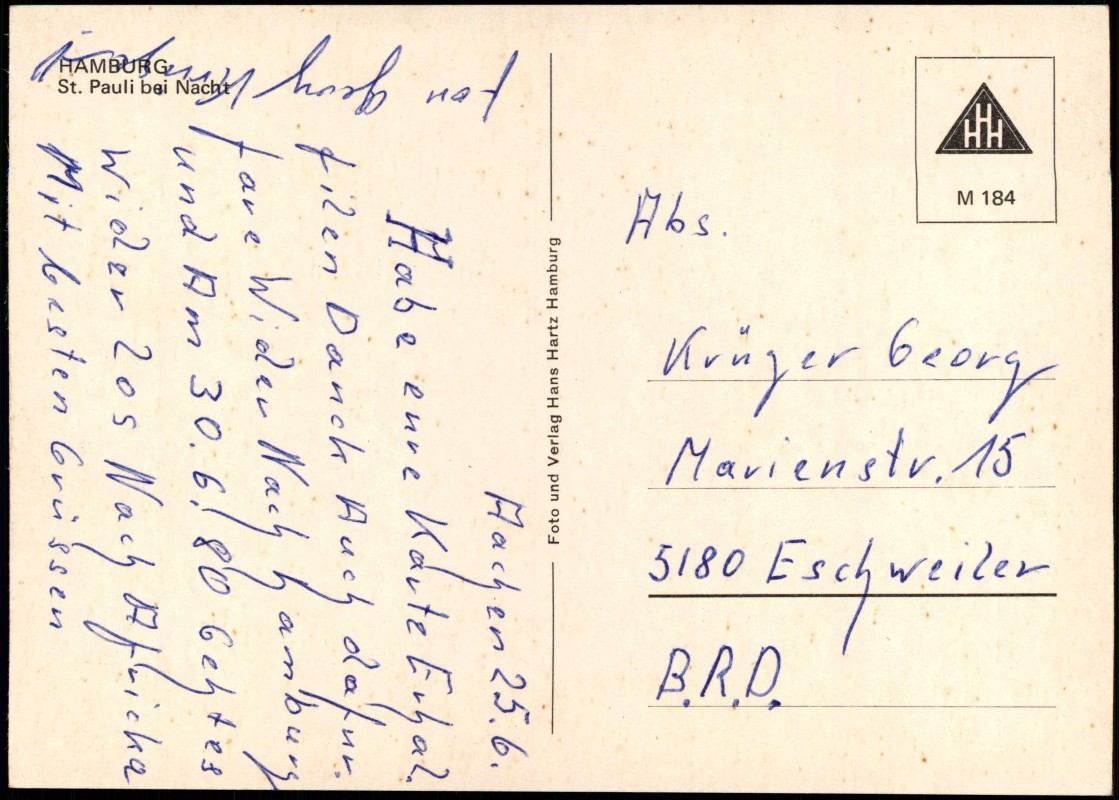 HAMBURG
St. Pauli bei Nacht
Aachen 25.6.
Habe eure Karte Erhal.
filen Danck Auch dafur.
fare Wider Nach Hamburg
und Am 30.6.80 Gehtes
wider los Nach Africka
Mit besten Grüssen
von Georg Krüger
Foto und Verlag Hans Hartz Hamburg
HHH
M 184
Abs.
Krüger Georg
Marienstr. 15
5180 Eschweiler
B.R.D.